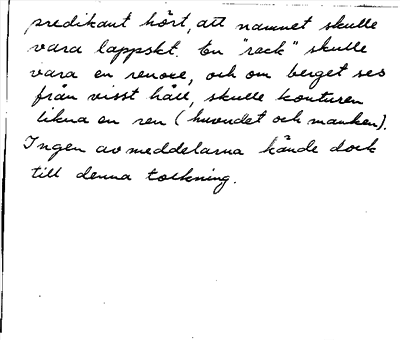 predikant hört, att namnet skulle
vara lappskt. En "rack" skulle
vara en renoxe, och om berget ses
från visst håll, skulle konturen
likna en ren (huvudet och manken).
Ingen av meddelarna kände dock
till denna tolkning.